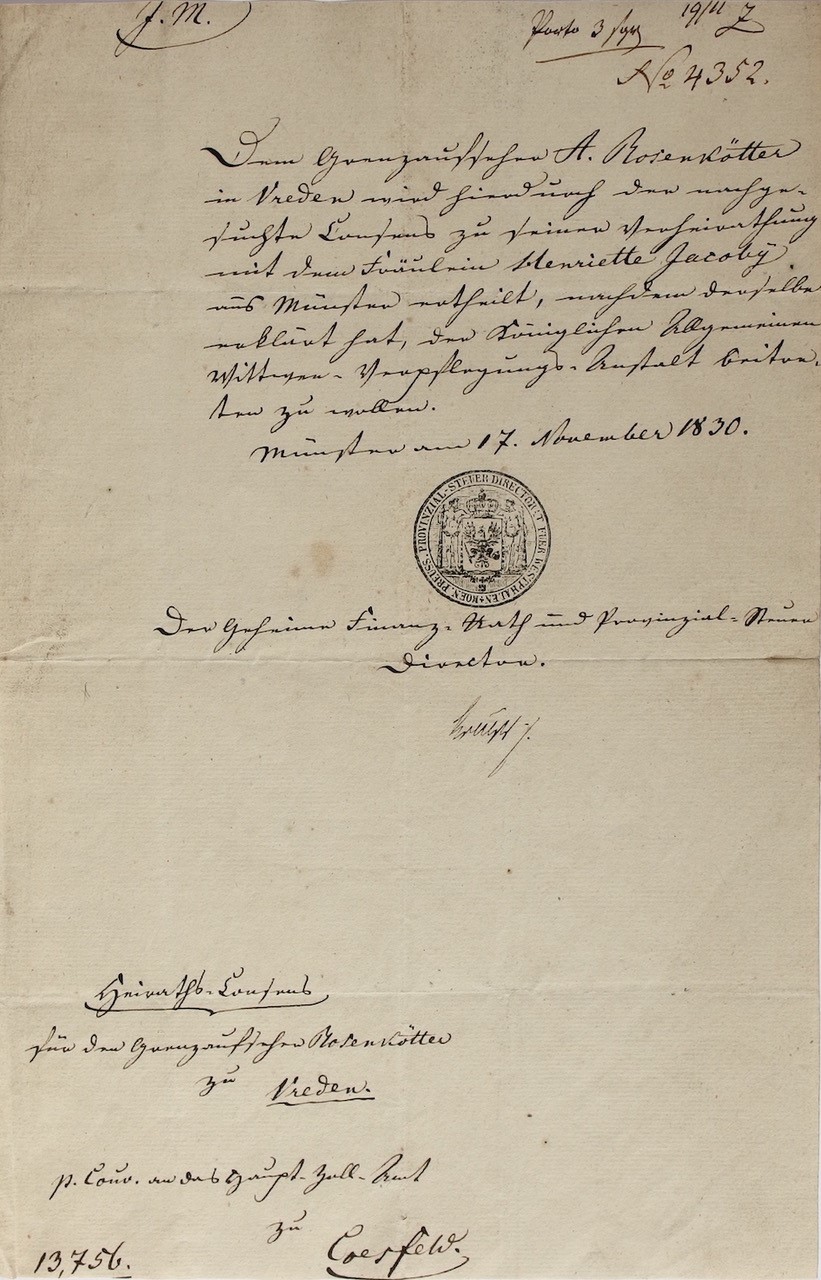 J. M.
Porto 3 sgr
19/11
No 4352.
Dem Grenzaufseher A. Rosenkötter
in Vreden wird hierdurch der nachge-
suchte Consens zu seiner Verheirathung
mit dem Fräulein Henriette Jacoby
aus Münster ertheilt, nachdem derselbe
erklärt hat, der Königlichen Allgemeinen
Wittwen-Verpflegungs-Anstalt beitre-
ten zu wollen.
Münster am 17. November 1830.
KOEN. PREUSS. PROVINZIAL-STEUER DIRECTORAT FUER WESTPHALEN
Der Geheime Finanz-Rath und Provinzial-Steuer
Director.
Heiraths-Consens
für den Grenzaufseher Rosenkötter
zu
Vreden.
p. Couv. an das Haupt-Zoll-Amt
zu
Coesfeld.
13,756.